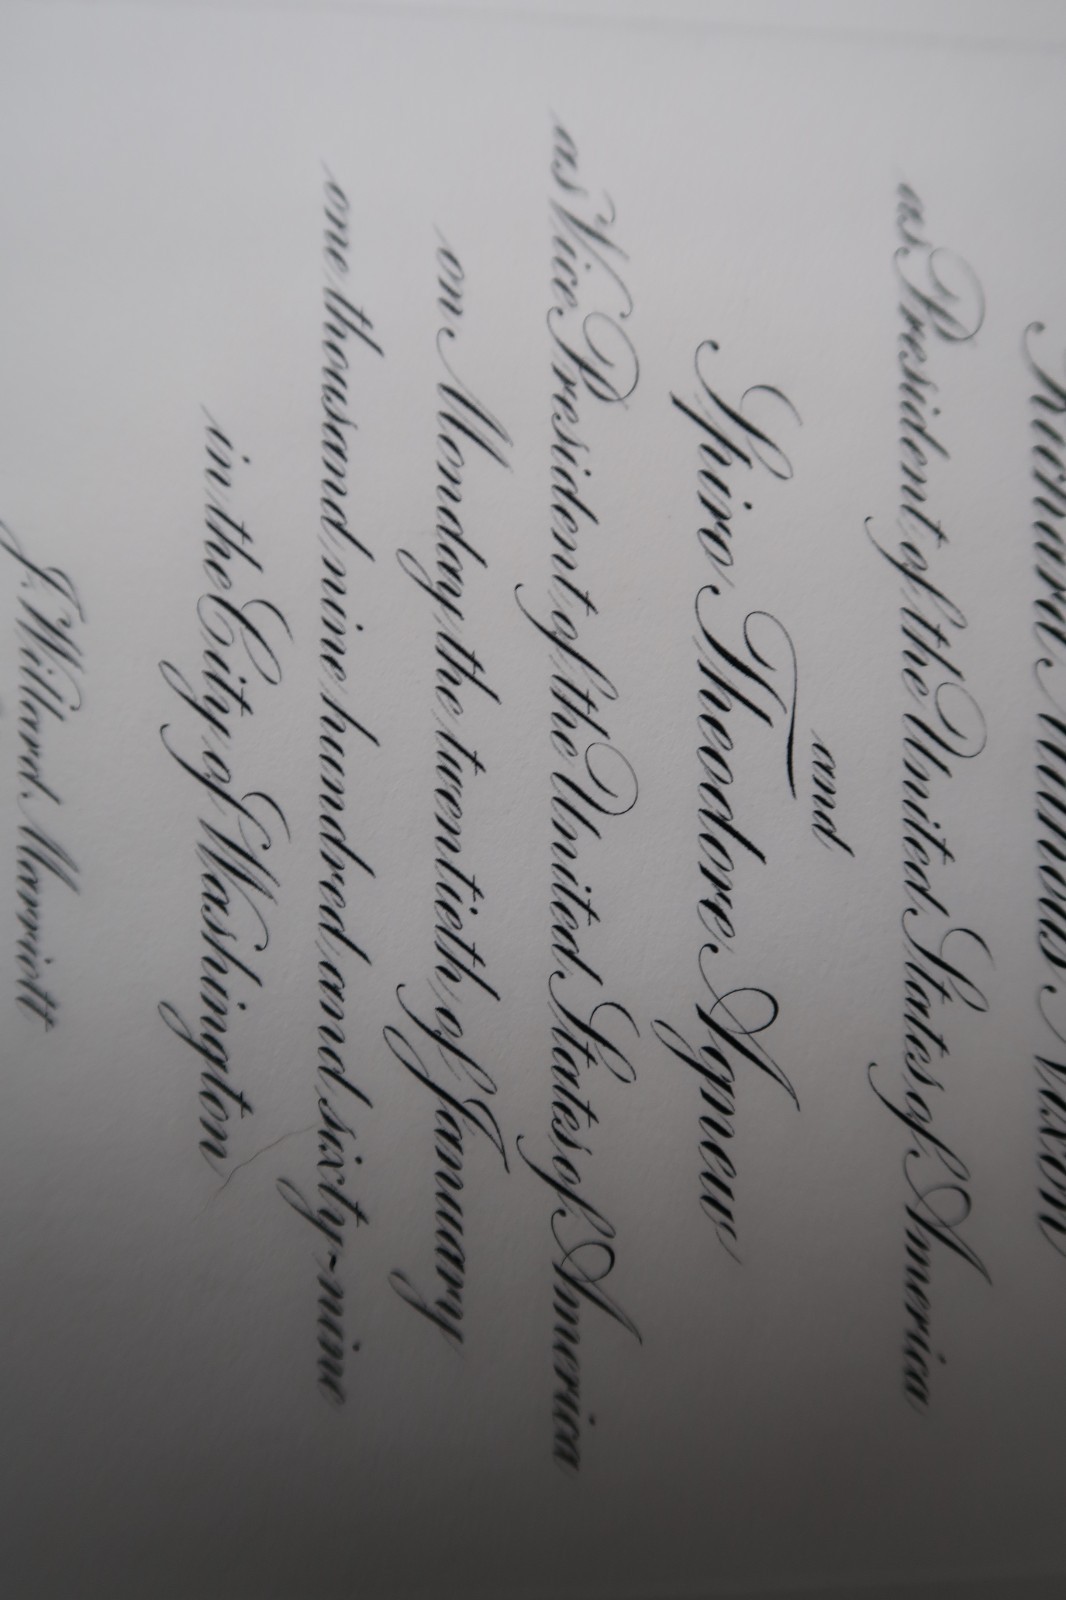 Richard Milhous Nixon
as President of the United States of America
and
Spiro Theodore Agnew
as Vice President of the United States of America
on Monday the twentieth of January
one thousand nine hundred and sixty-nine
in the City of Washington
J. Willard Marriott